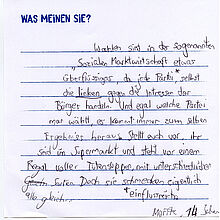 WAS MEINEN SIE?
Wahlen sind in der sogenannten
"Sozialen Marktwirtschaft etwas
Überflüssiges, da jede Partei*, selbst
die linken, gegen die Interesse der
Bürger handeln. Und egal welche Partei
man wählt, es kommt immer zum selben
Ergebnis heraus. Stellt euch vor, ihr
seid im Supermarkt und steht vor einem
Regal voller Tütensuppen, mit unterschiedlichen
Sorten. Doch sie schmecken eigentlich
alle gleich.
*einflussreich
14